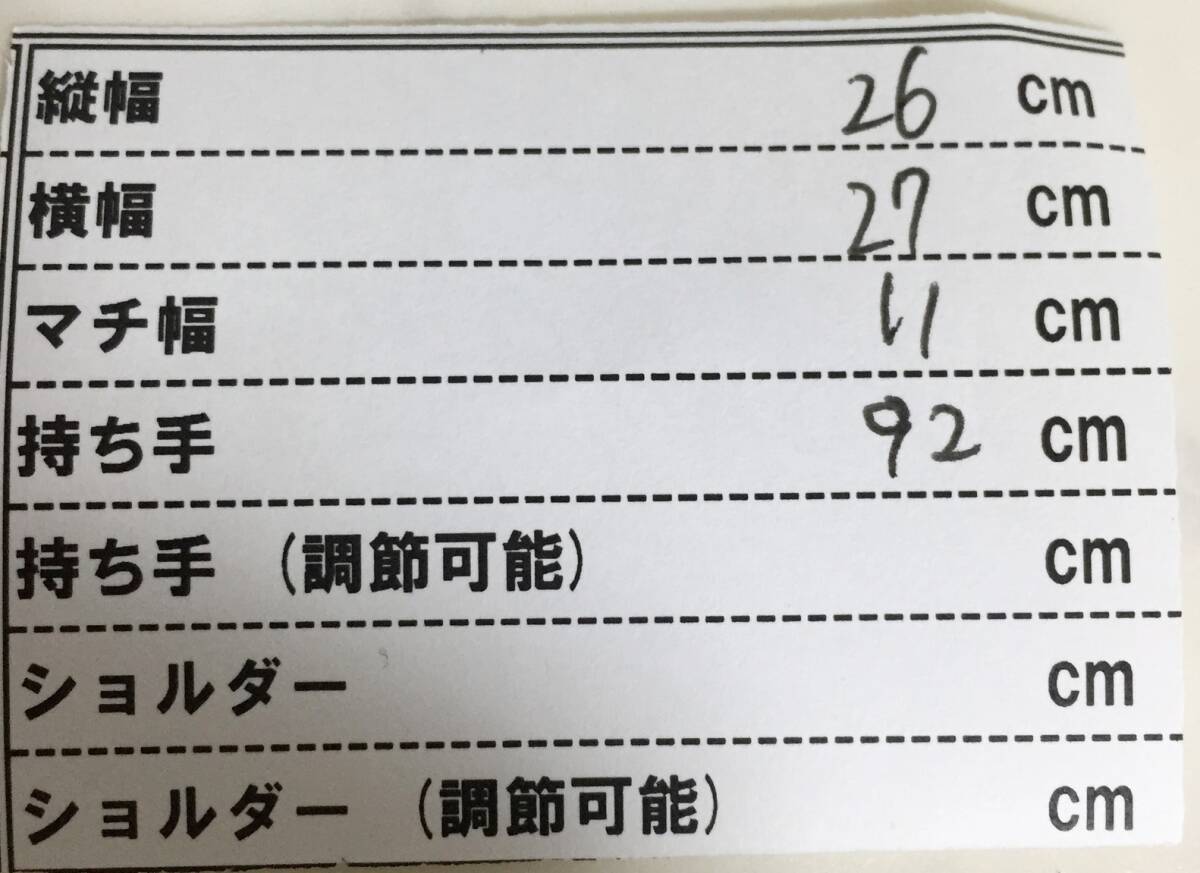 縦幅 26 cm
横幅 27 cm
マチ幅 11 cm
持ち手 92 cm
持ち手 (調節可能) cm
ショルダー cm
ショルダー (調節可能) cm